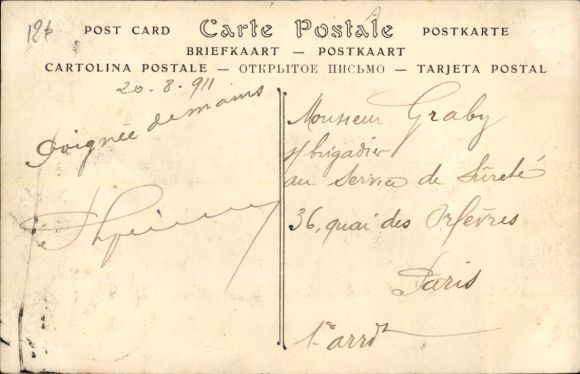 12f
POST CARD Carte Postale POSTKARTE
BRIEFKAART — POSTKAART
CARTOLINA POSTALE — ОТКРЫТОЕ ПИСЬМО — TARJETA POSTAL
20-8-911
Poignée de mains
Monsieur Graby
s/brigadier
au Service de Sûreté
36, quai des Orfèvres
Paris
1er arrdt